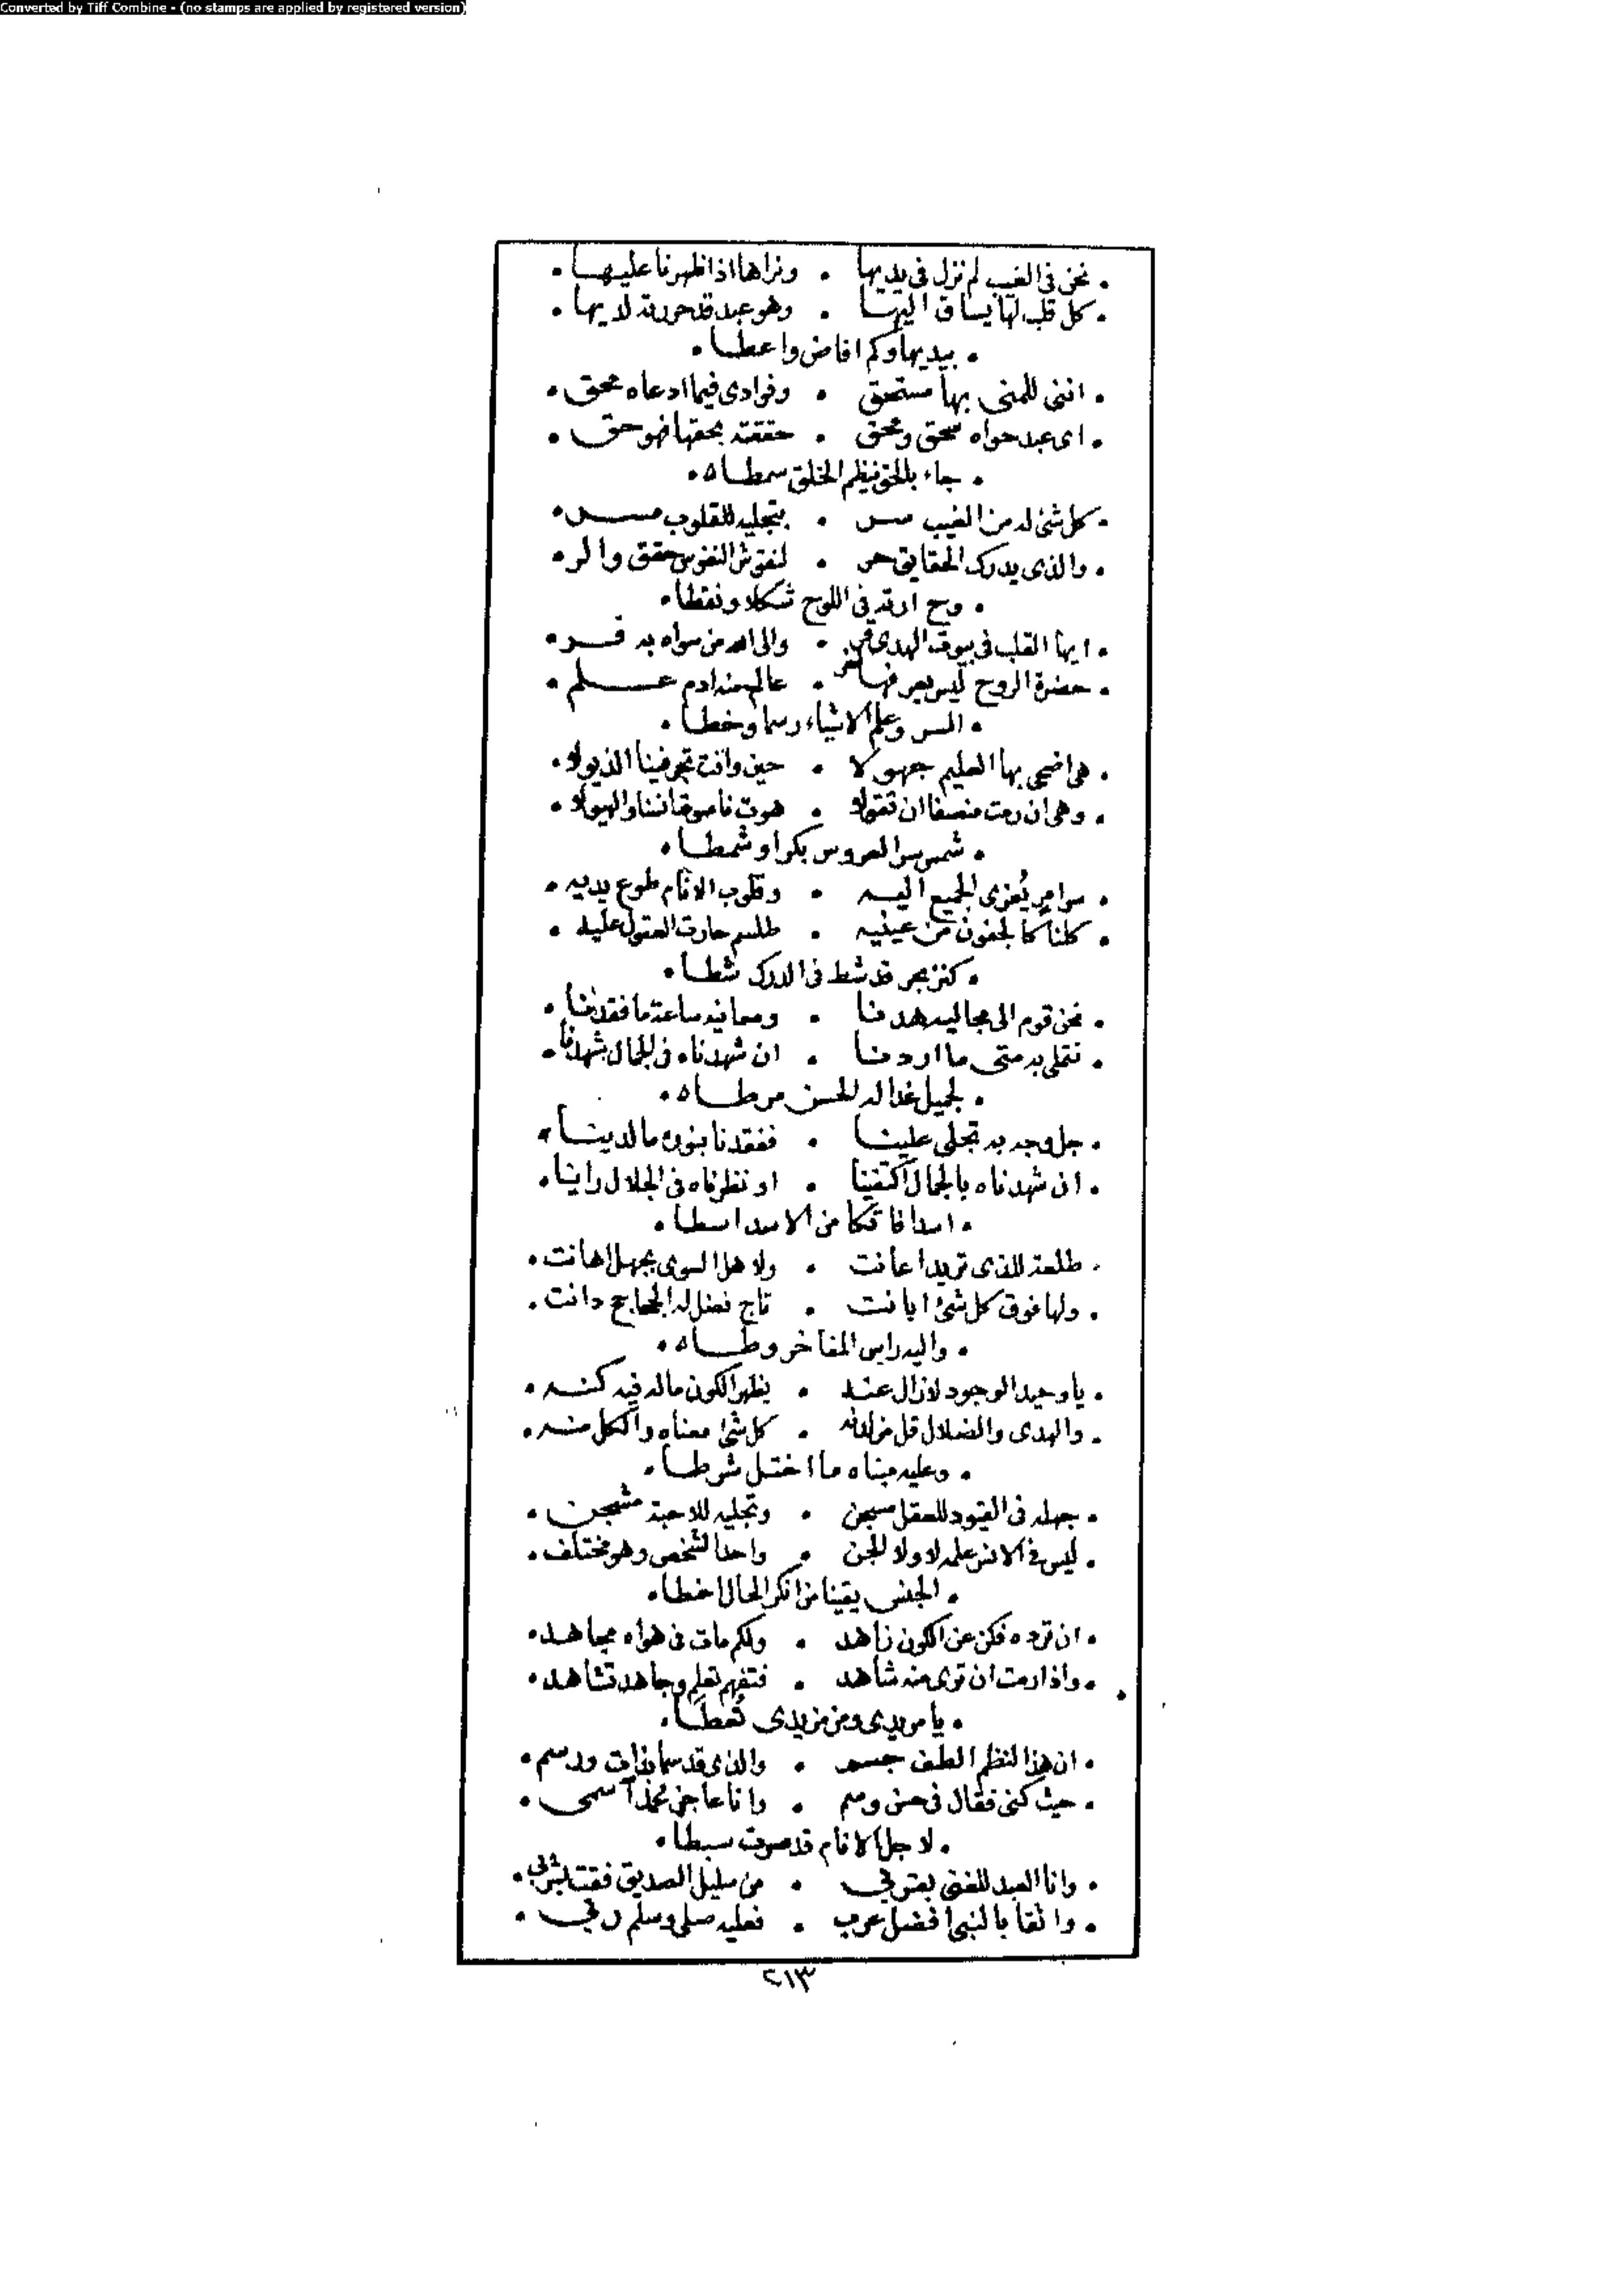 Converted by Tiff Combine - (no stamps are applied by registered version)
. نحن في الغيب لم نزل في يديها . ونراها اذا ظهرنا عليها .
. كل قلب لها يساق اليها . وهو عبد قد حررته لديها .
. بيديها وكم افاض واعطا .
. اننى للمنى بها مستحق . وفوادى فيما ادعاه محق .
. اى عبد حواه سحق ومحق . حققته بحقها فهو حق .
. جاء بالحق نيظم الخلق سمطاه .
. كل شئ له من الغيب سر . بتجليه للقلوب يسر .
. والذى يدرك الحقايق حر . لنقوش النفوس حقق
. في اللوح شكلا ونقطا .
. ايها القلب في بيوت الهدى قم . والى الله من سواه به فر .
. حضرة الروح ليس يعرفها . عالم منه ادم علم .
. السر وعلم الاشياء رسما وخطا .
. هى اضحى بها العليم جهولا . حين وافت تجر فينا الذيولا .
. وهى ان رمت منصفا ان تقولا .
. شمس سر العروس بكرا وشمطا .
. سر امر يُعزى الجميع اليه . وقلوب الانام طوع يديه .
. كلنا كالجفون من عينيه . طلسم حارت العقول عليه .
. كنز بحر قد شط في الدرك شطا .
. نحن قوم الى مجاليه هدنا . ومعانيه ساعة ما فقدنا .
. نتملى به متى ما اردنا . ان شهدناه في الجمال شهدنا .
. لجميل غدا له الحسن مرطاه .
. جل وجه به تجلى علينا . ففقدنا بنوره ما لدينا .
. ان شهدناه بالجمال اكتفينا . او نظرناه في الجلال راينا .
. اسدا فاتكا من الاسد اسطا .
. طلعة للذى تريد اعانت . ولاهل السوى بجهل اهانت .
. ولها فوق كل شئ ابانت . تاج فضل له الجحاجح دانت .
. واليه راس المفاخر وطاه .
. يا وحيد الوجود لازال عنه . يظهر الكون ماله فيه كنه .
. والهدى والضلال قل من لدنه . كل شئ معناه والكل منه .
. وعليه مبناه ما اختل شرطا .
. جهله في القيود للعقل سجن . وتجليه للاحبة شجن .
. ليس في الانس علمه لا ولا الجن . واحد الشخص وهو مختلف .
. الجنس يقينا من انكر الحال اخطا .
. ان ترده فكن عن الكون زاهد . ولكم مات في هواه مجاهد .
. واذا رمت ان ترى منه شاهد . فتفهم تعلم وجاهد تشاهد .
. يا مريدى ومن مزيدى تُعطا .
. ان هذا النظم الطف جسم . والذى قد سما بذات ورسم .
. حيث كنى فقال في حسن وسم .
. لاجل الانام قد صرت سبطا .
. وانا العبد للغنى بقربى . من سليل الصديق فقت بشربى .
. واثقا بالنبى افضل عرب . فعليه صلى وسلم ربى .
٢١٣